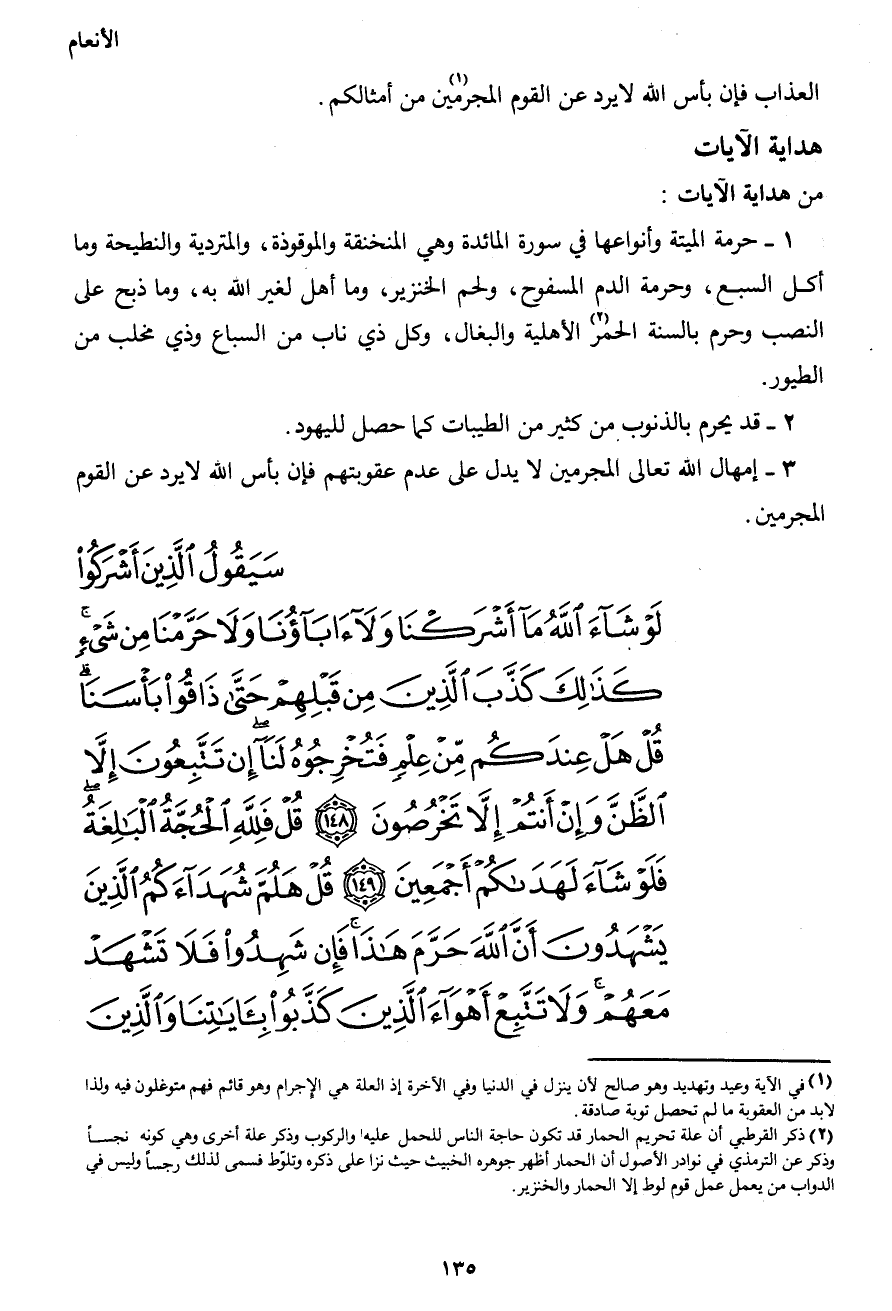 الأنعام
العذاب فإن بأس الله لايرد عن القوم المجرمين(١) من أمثالكم .
هداية الآيات
من هداية الآيات :
١ - حرمة الميتة وأنواعها في سورة المائدة وهي المنخنقة والموقوذة، والمتردية والنطيحة وما
أكل السبع، وحرمة الدم المسفوح، ولحم الخنزير، وما أهل لغير الله به، وما ذبح على
النصب وحرم بالسنة الحمر(٢) الأهلية والبغال، وكل ذي ناب من السباع وذي مخلب من
الطيور.
٢ - قد يحرم بالذنوب من كثير من الطيبات كما حصل لليهود.
٣ - إمهال الله تعالى المجرمين لا يدل على عدم عقوبتهم فإن بأس الله لايرد عن القوم
المجرمين.
سَيَقُولُ ٱلَّذِينَ أَشْرَكُوا۟
لَوْ شَآءَ ٱللَّهُ مَآ أَشْرَكْنَا وَلَآ ءَابَآؤُنَا وَلَا حَرَّمْنَا مِن شَىْءٍ ۚ
كَذَٰلِكَ كَذَّبَ ٱلَّذِينَ مِن قَبْلِهِمْ حَتَّىٰ ذَاقُوا۟ بَأْسَنَا ۗ
قُلْ هَلْ عِندَكُم مِّنْ عِلْمٍ فَتُخْرِجُوهُ لَنَآ ۖ إِن تَتَّبِعُونَ إِلَّا
ٱلظَّنَّ وَإِنْ أَنتُمْ إِلَّا تَخْرُصُونَ ﴿١٤٨﴾ قُلْ فَلِلَّهِ ٱلْحُجَّةُ ٱلْبَٰلِغَةُ ۖ
فَلَوْ شَآءَ لَهَدَىٰكُمْ أَجْمَعِينَ ﴿١٤٩﴾ قُلْ هَلُمَّ شُهَدَآءَكُمُ ٱلَّذِينَ
يَشْهَدُونَ أَنَّ ٱللَّهَ حَرَّمَ هَٰذَا ۖ فَإِن شَهِدُوا۟ فَلَا تَشْهَدْ
مَعَهُمْ ۚ وَلَا تَتَّبِعْ أَهْوَآءَ ٱلَّذِينَ كَذَّبُوا۟ بِـَٔايَٰتِنَا وَٱلَّذِينَ
(١) في الآية وعيد وتهديد وهو صالح لأن ينزل في الدنيا وفي الآخرة إذ العلة هي الإجرام وهو قائم فهم متوغلون فيه ولذا
لابد من العقوبة ما لم تحصل توبة صادقة.
(٢) ذكر القرطبي أن علة تحريم الحمار قد تكون حاجة الناس للحمل عليها والركوب وذكر علة أخرى وهي كونه نجساً
وذكر عن الترمذي في نوادر الأصول أن الحمار أظهر جوهره الخبيث حيث نزا على ذكره وتلوّط فسمى لذلك رجساً وليس في
الدواب من يعمل عمل قوم لوط إلا الحمار والخنزير.
١٣٥